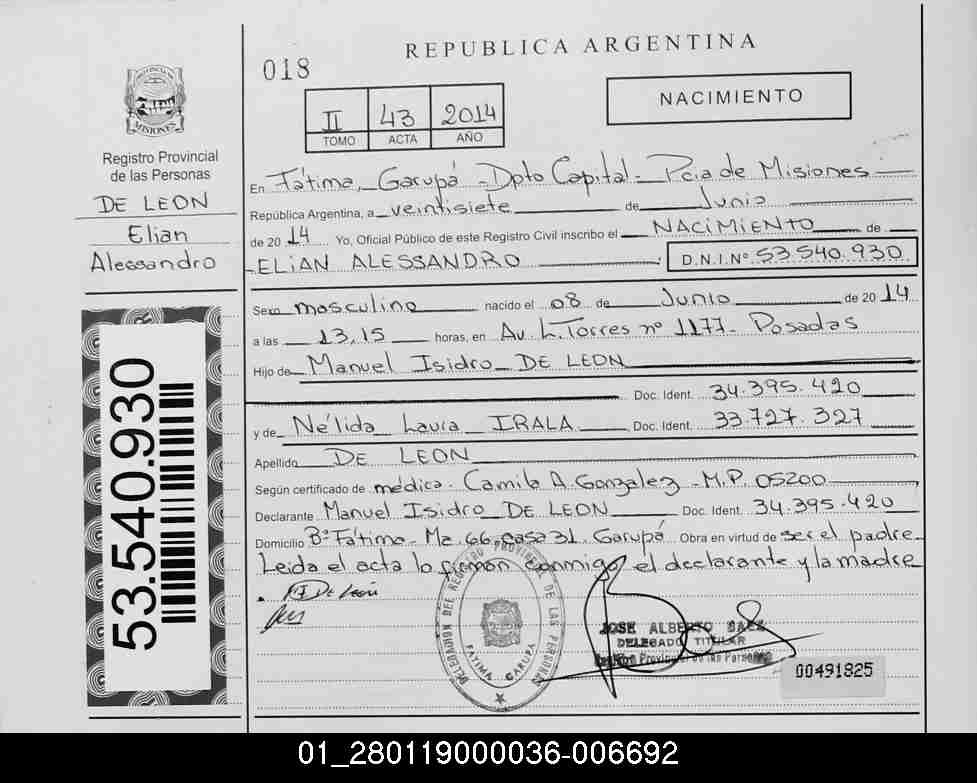 REPUBLICA ARGENTINA
018
NACIMIENTO
II 43 2014
TOMO ACTA AÑO
PROVINCIA DE
MISIONES
Registro Provincial
de las Personas
DE LEON
Elian
Alessandro
53.540.930
En Fátima, Garupá - Dpto Capital - Pcia de Misiones
República Argentina, a veintisiete de Junio
de 2014 Yo, Oficial Público de este Registro Civil inscribo el NACIMIENTO de
ELIAN ALESSANDRO D.N.I.Nº 53.540.930
Sexo masculino nacido el 08 de Junio de 2014
a las 13,15 horas, en Av. L. Torres nº 1177 - Posadas
Hijo de Manuel Isidro DE LEON
Doc. Ident. 34.395.420
y de Nélida Laura IRALA Doc. Ident. 33.727.327
Apellido DE LEON
Según certificado de médica. Camila A. Gonzalez - M.P. 05200
Declarante Manuel Isidro DE LEON Doc. Ident. 34.395.420
Domicilio Bº Fátima - Mz 66, casa 31. Garupá. Obra en virtud de ser el padre.
Leida el acta lo firman conmigo el declarante y la madre
De León
DELEGACION DEL REGISTRO PROVINCIAL DE LAS PERSONAS
FATIMA GARUPA
JOSE ALBERTO BAEZ
DELEGADO TITULAR
Registro Provincial de las Personas
00491825
01_280119000036-006692